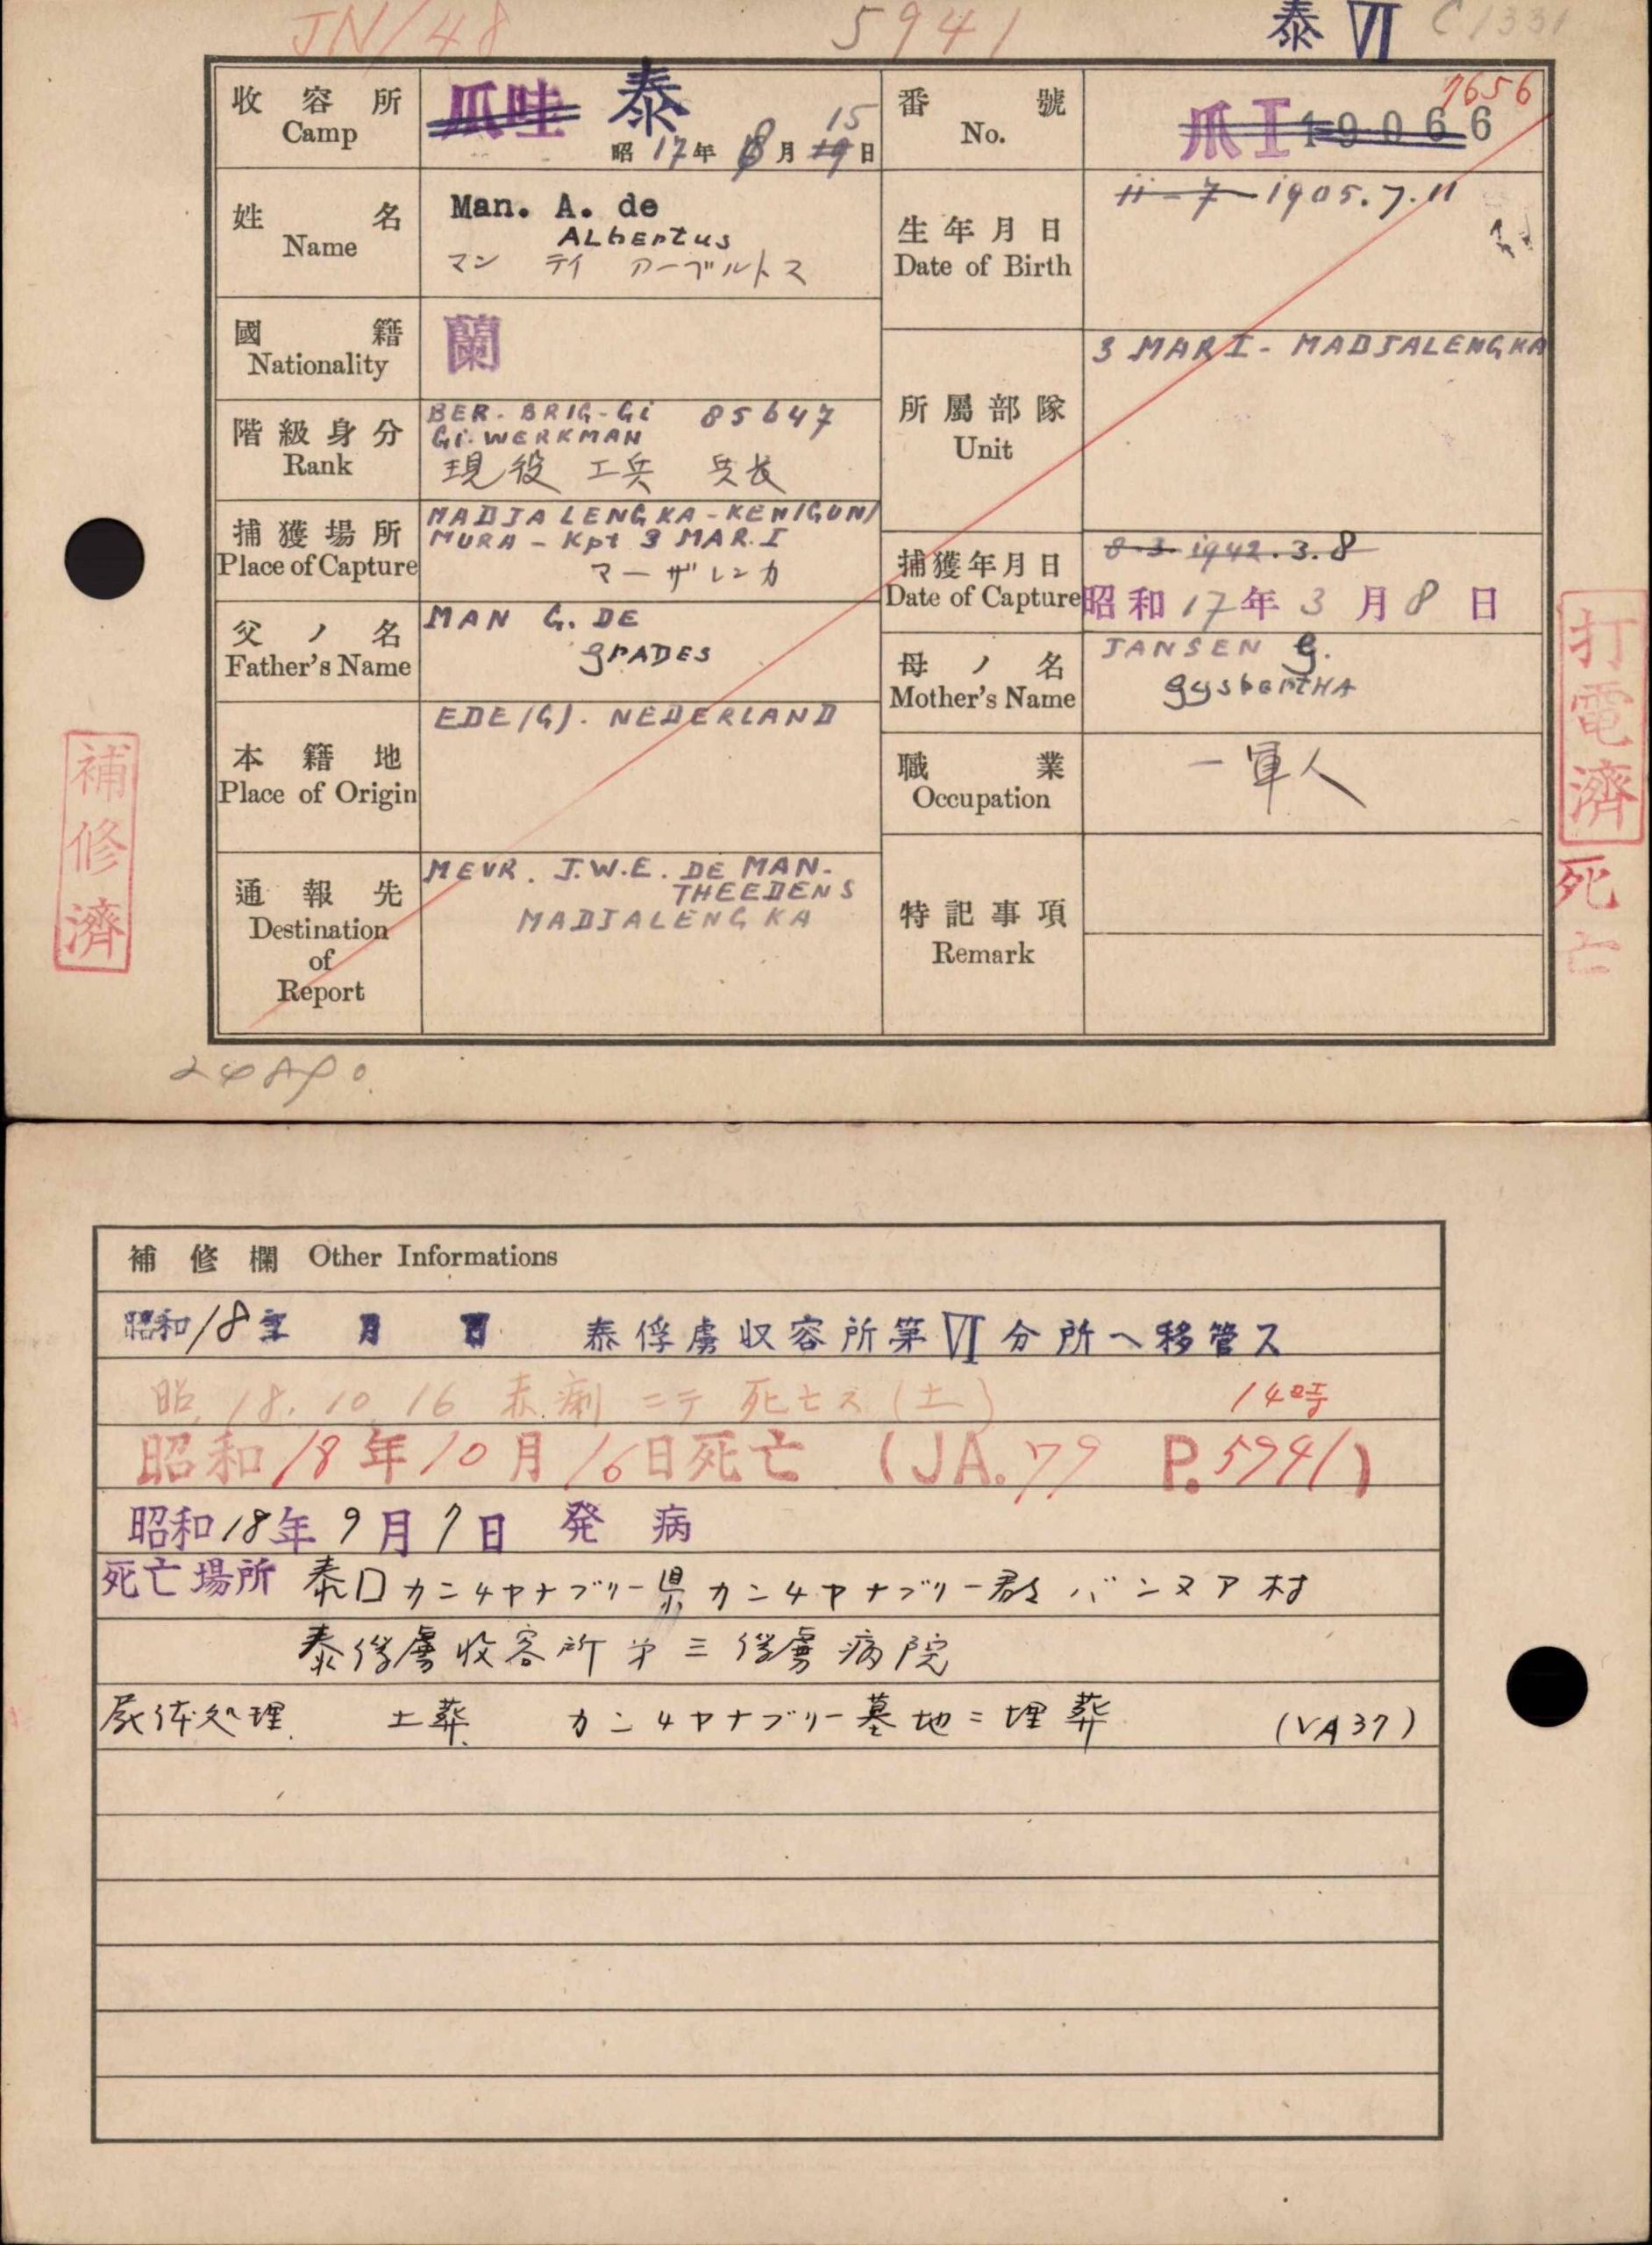 JN/48 5941 泰 VI C1331
收容所 Camp 爪哇 泰
昭17年8月15日
番號 No. 爪I 19066 7656
姓名 Name Man. A. de
ALbertus
マン デイ アーブルトス
生年月日 Date of Birth 11-7-1905.7.11
國籍 Nationality 蘭
階級身分 Rank BER. BRIG-Gi 85647
Gi. WERKMAN
現役 工兵 兵长
所屬部隊 Unit 3 MAR I - MADJALENGKA
捕獲場所 Place of Capture MADJALENGKA-KENIGUN/
MURA - Kpt 3 MAR. I
マーザレンカ
捕獲年月日 Date of Capture 8-3-1942.3.8
昭和17年3月8日
父ノ名 Father's Name MAN G. DE
gRADES
母ノ名 Mother's Name JANSEN G.
gysbertHA
本籍地 Place of Origin EDE (G). NEDERLAND
職業 Occupation 一軍人
通報先 Destination of Report MEVR. J.W.E. DE MAN-
THEEDENS
MADJALENGKA
特記事項 Remark
補修濟
打電濟
死亡
補修欄 Other Informations
昭和18年 月 日 泰俘虜収容所第VI分所へ移管ス
昭18.10.16 赤痢ニテ死亡ス(土) 14時
昭和18年10月16日死亡 (JA.79 P.5941)
昭和18年9月7日 発病
死亡場所 泰国カンチヤナブリー県カンチヤナブリー郡バンヌア村
泰俘虜收容所第三俘虜病院
屍体処理 土葬 カンチヤナブリー墓地ニ埋葬 (VA37)